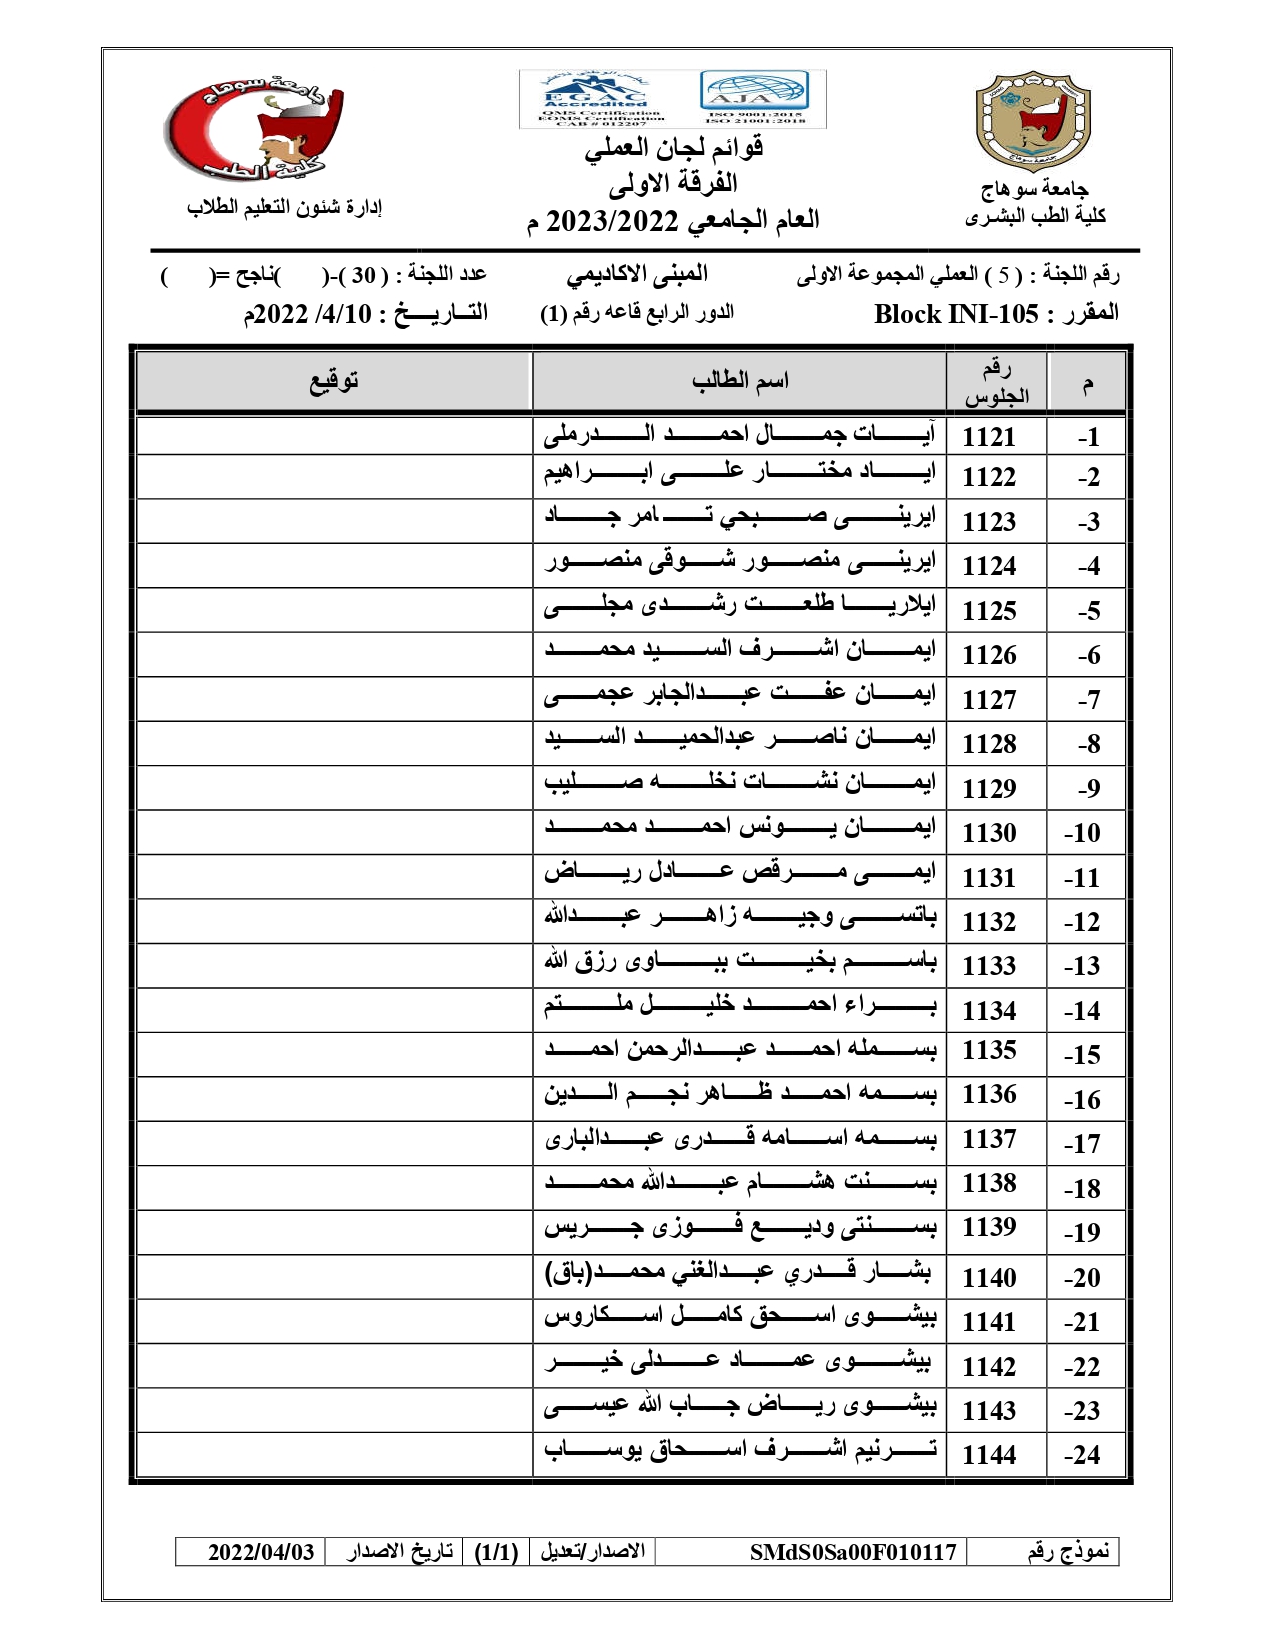 جامعة سوهاج
كلية الطب البشرى
EGAC
Accredited
QMS Certification
EOMS Certification
CAB # 012207
AJA
ISO 9001:2015
ISO 21001:2018
قوائم لجان العملي
الفرقة الاولى
العام الجامعي 2023/2022 م
جامعة سوهاج
كلية الطب
إدارة شئون التعليم الطلاب
رقم اللجنة : ( 5 ) العملي المجموعة الاولى المبنى الاكاديمي عدد اللجنة : ( 30 )-( )ناجح =( )
المقرر : Block INI-105 الدور الرابع قاعه رقم (1) التـاريـخ : 4/10/ 2022م
م رقم الجلوس اسم الطالب توقيع
1- 1121 آيات جمال احمد الدرملى
2- 1122 اياد مختار على ابراهيم
3- 1123 ايرينى صبحي تامر جاد
4- 1124 ايرينى منصور شوقى منصور
5- 1125 ايلاريا طلعت رشدى مجلى
6- 1126 ايمان اشرف السيد محمد
7- 1127 ايمان عفت عبدالجابر عجمى
8- 1128 ايمان ناصر عبدالحميد السيد
9- 1129 ايمان نشات نخله صليب
10- 1130 ايمان يونس احمد محمد
11- 1131 ايمى مرقص عادل رياض
12- 1132 باتسى وجيه زاهر عبدالله
13- 1133 باسم بخيت بباوى رزق الله
14- 1134 براء احمد خليل ملتم
15- 1135 بسمله احمد عبدالرحمن احمد
16- 1136 بسمه احمد ظاهر نجم الدين
17- 1137 بسمه اسامه قدرى عبدالبارى
18- 1138 بسنت هشام عبدالله محمد
19- 1139 بسنتى وديع فوزى جريس
20- 1140 بشار قدري عبدالغني محمد(باق)
21- 1141 بيشوى اسحق كامل اسكاروس
22- 1142 بيشوى عماد عدلى خير
23- 1143 بيشوى رياض جاب الله عيسى
24- 1144 ترنيم اشرف اسحاق يوساب
نموذج رقم SMdS0Sa00F010117 الاصدار/تعديل (1/1) تاريخ الاصدار 2022/04/03